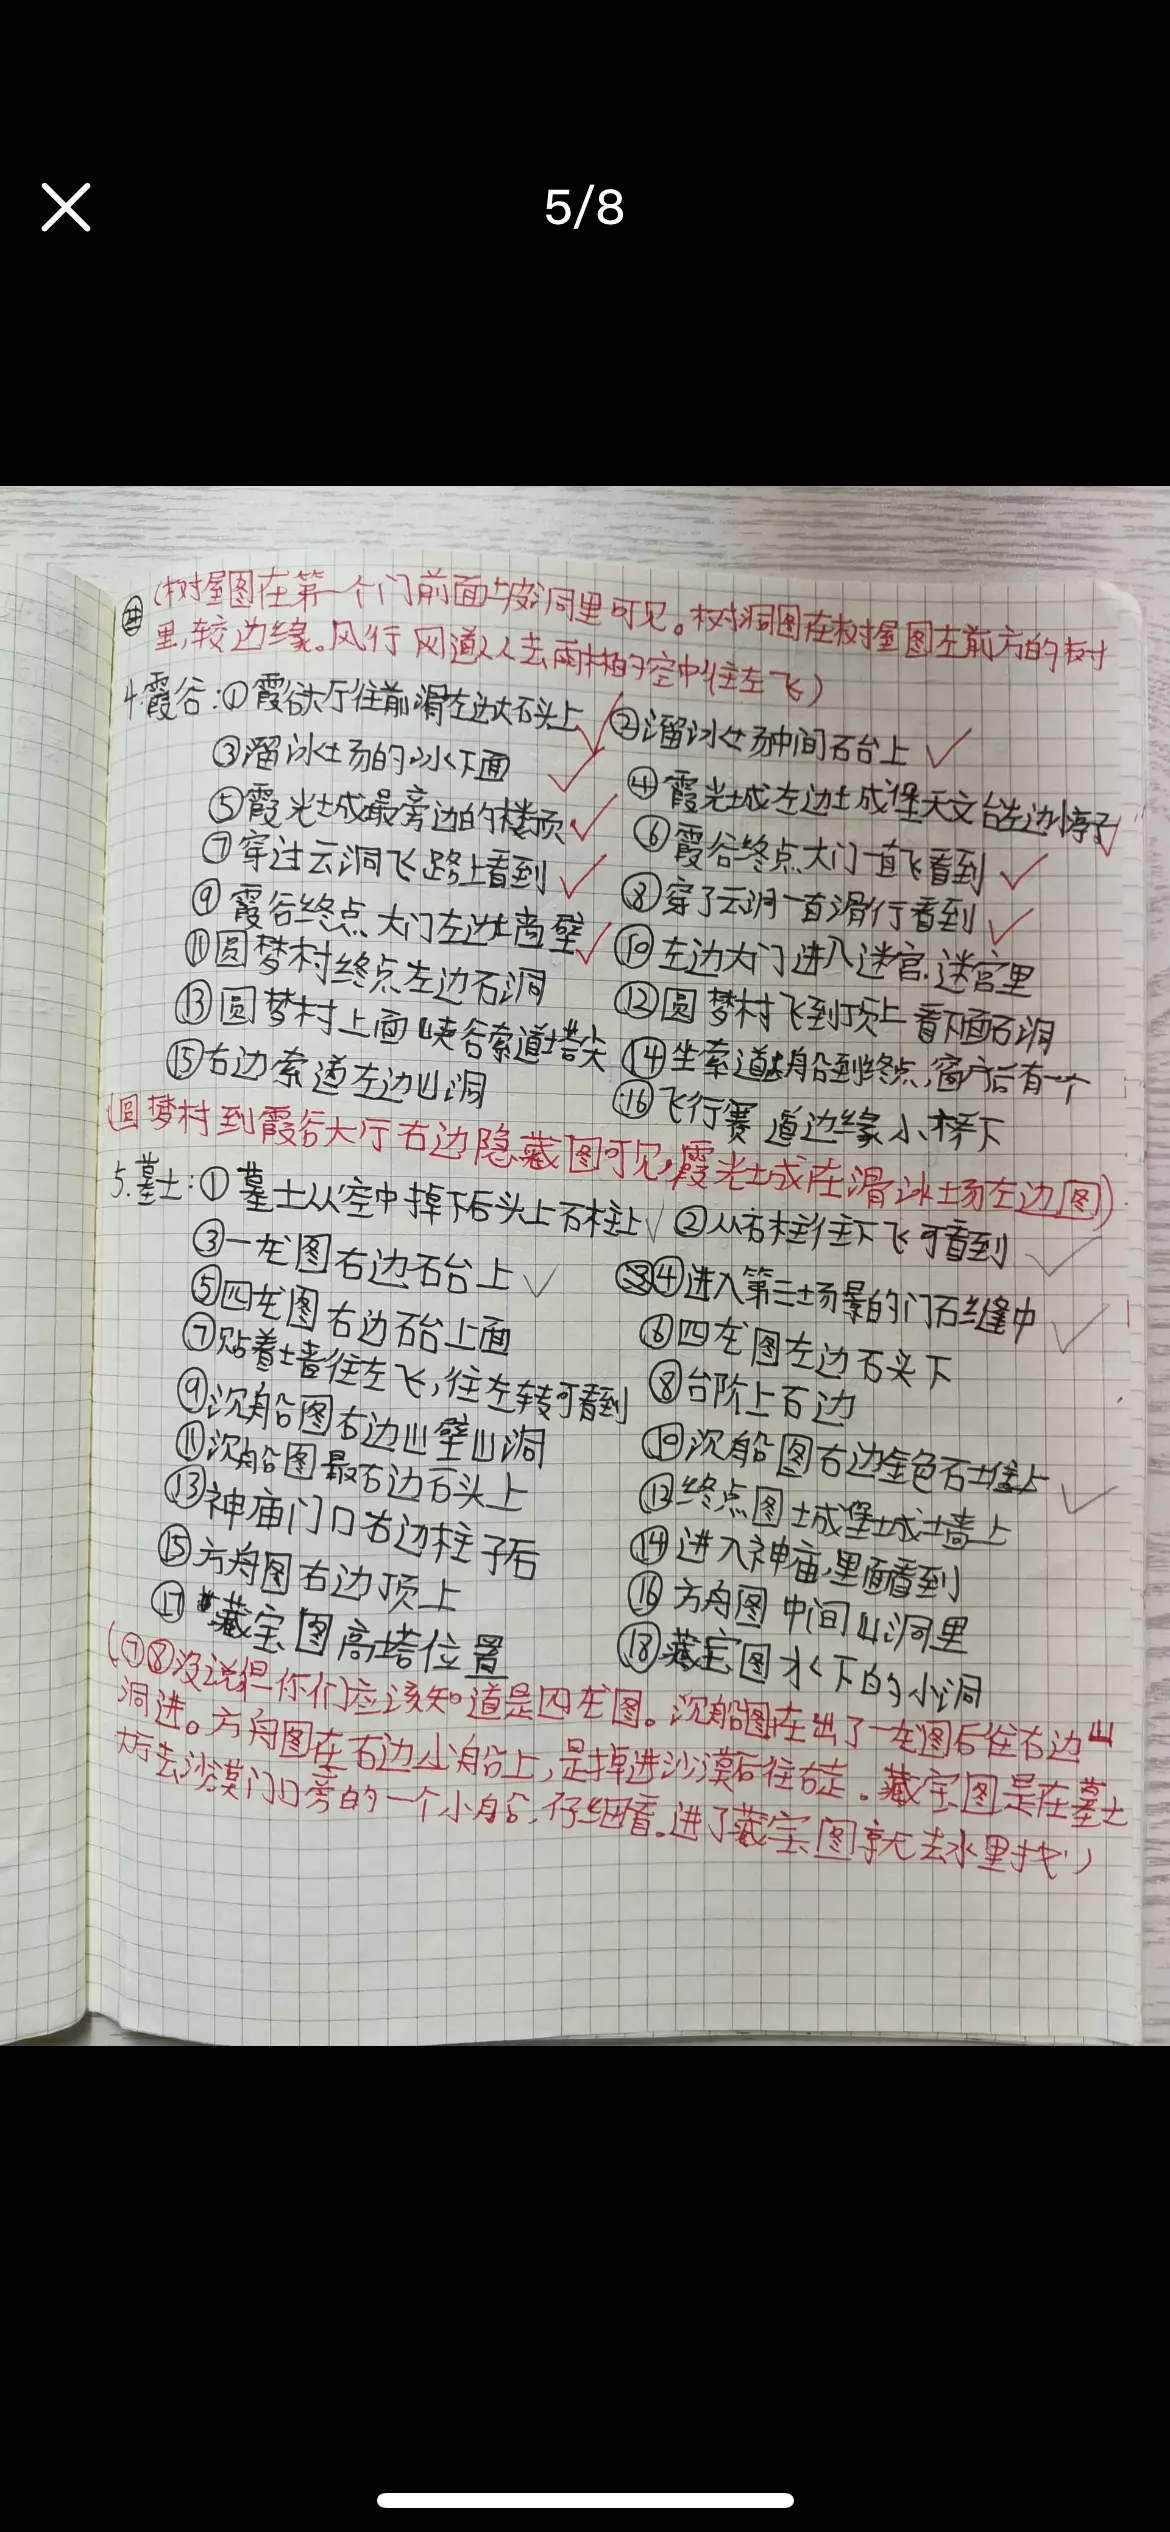 5/8
(树屋图在第一个门前面坡洞里可见。树洞图在树屋图左前方的树
里,较边缘。风行网道从去雨林的空中往左飞)
4.霞谷:①霞谷大厅往前滑左边大石头上 ②溜冰场中间石台上
③溜冰场的冰下面 ④霞光城左边城堡天文台左边亭子
⑤霞光城最旁边的楼顶 ⑥霞谷终点大门一直飞看到
⑦穿过云洞飞路上看到 ⑧穿了云洞一直滑行看到
⑨霞谷终点大门左边墙壁 ⑩左边大门进入迷宫.迷宫里
⑪圆梦村终点左边石洞 ⑫圆梦村飞到顶上看下面石洞
⑬圆梦村上面峡谷索道塔尖 ⑭坐索道船到终点,窗户后有一个
⑮右边索道左边山洞 ⑯飞行赛道边缘小桥下
(圆梦村到霞谷大厅右边隐藏图可见,霞光城在滑冰场左边图)
5.墓土:①墓土从空中掉下石头上石柱上 ②从石柱往下飞可看到
③一龙图右边石台上 ④进入第三场景的门石缝中
⑤四龙图右边石台上面 ⑥四龙图左边石头下
⑦贴着墙往左飞,往左转可看到 ⑧台阶上右边
⑨沉船图右边山壁山洞 ⑩沉船图右边金色石堆上
⑪沉船图最右边石头上 ⑫终点图城堡城墙上
⑬神庙门口右边柱子后 ⑭进入神庙,里面看到
⑮方舟图右边顶上 ⑯方舟图中间山洞里
⑰藏宝图高塔位置 ⑱藏宝图水下的小洞
(⑦⑧没说但你们应该知道是四龙图。沉船图在出了一龙图后往右边山
洞进。方舟图在右边小船上,是掉进沙漠后往右走。藏宝图是在墓土
大厅去沙漠门口旁的一个小船,仔细看。进了藏宝图就去水里找)